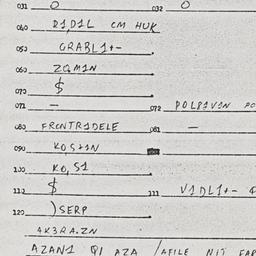 031 O 032 O
040 D1,D1L CM HUK
050 GRABL1+-
060 ZQM1N
070 $
071 - 072 POL81V1N PO
080 FRONTR1DELE 081 -
090 KOS+1N
100 KO,S1
110 $ 111 V1DL1+-
120 )SERP
4K3RA.ZN
AZAN1 Q1 AZA /AFILE N1T FAR